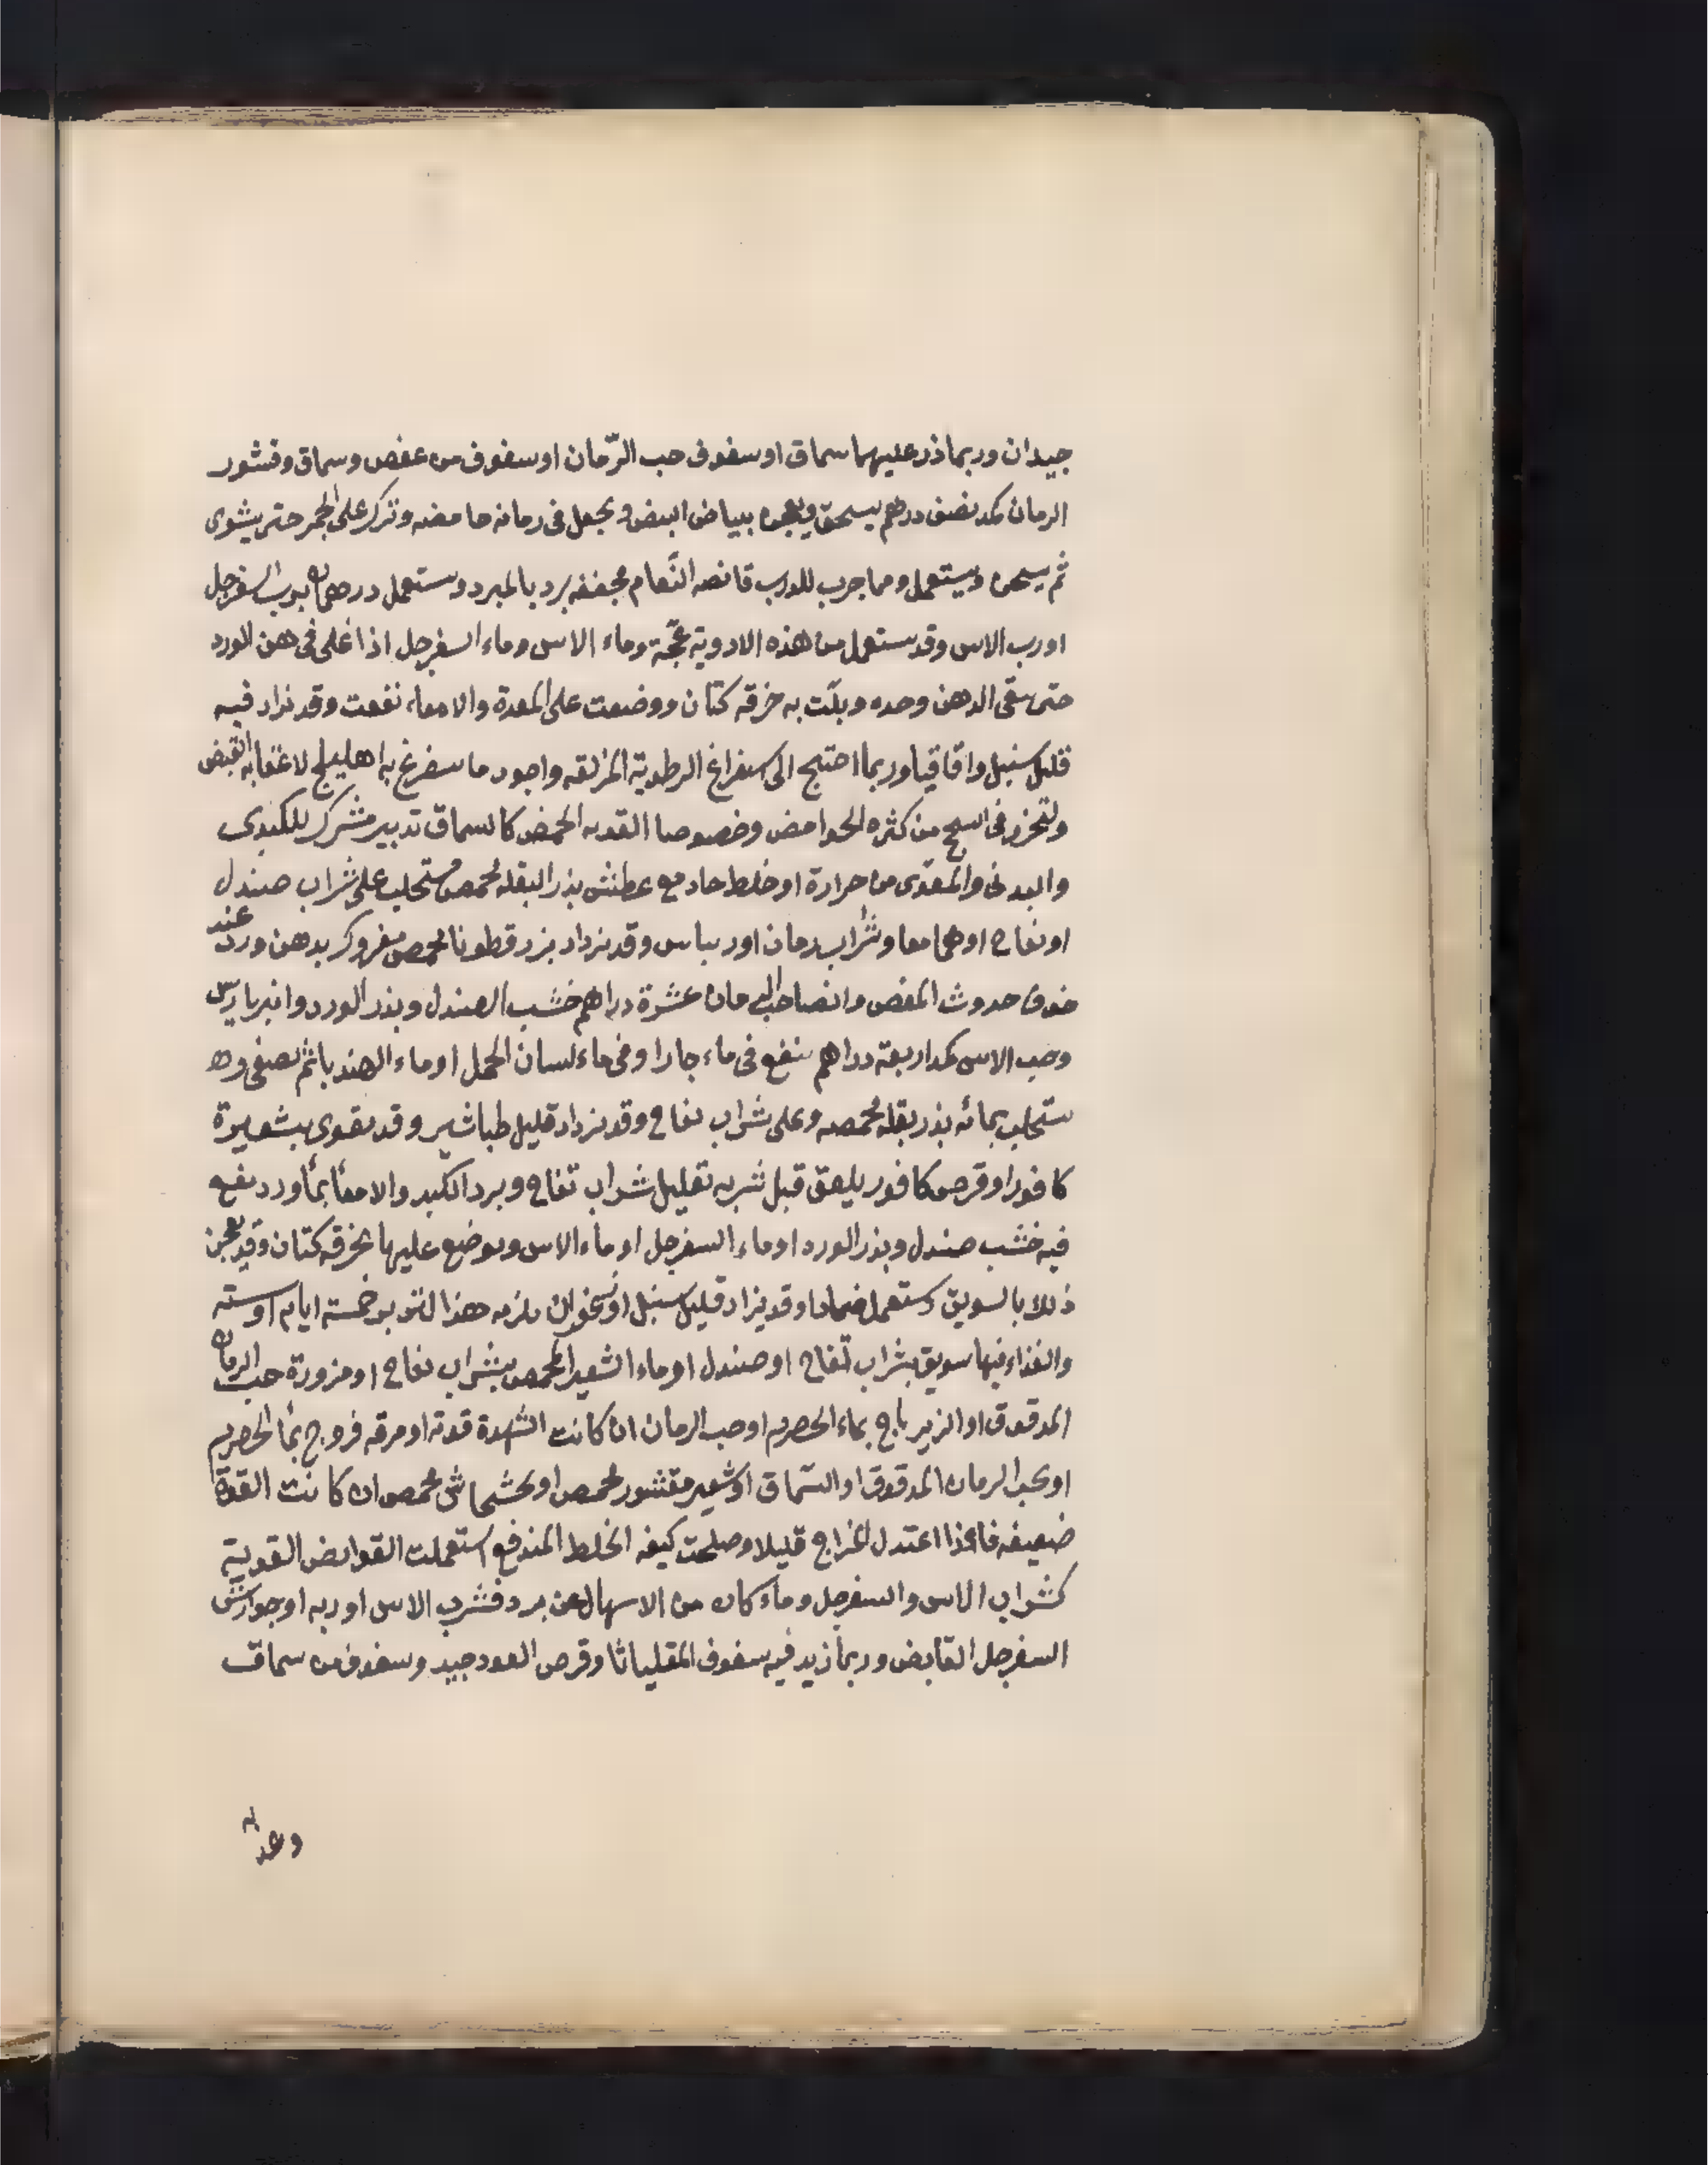 جيدان وربما ذر عليهما سماق او سفوف حب الرّمان او سفوف من عفص وسماق وقشور
الرمان مكد نصف درهم يسحق ويعجن ببياض البيض ويجعل فى رمانه حامضه وتركر على الجمر حتى يشوى
ثم يسحق ويستعمل ومما جرب للذرب قانصه النّعام مجففه برد بالمبرد وستعمل درهمان برب السفرجل
اورب الاس وقد ستعمل من هذه الادوية عجّة وماء الاس وماء السفرجل اذا اغلى فى دهن الورد
حتى سقى الدهن وحده وبلّت به خرقه كتان ووضعت على المعدة والامعاء نفعت وقد نراد فيه
قليل سنبل واقاقيا وربما احتيج الى ستفراغ الرطوبة المزلقه واجود ما ستفرغ به اهليلج لاعقابه القبض
ولتحزر فى السحج من كثره الحوامض وخصوصا القديه الحمض كالسماق تدبير مشترك للكبدى
والبدنى والمعوّى من حرارة او خلط حاد مع عطش بذر البقله محمص مستحلب على شراب صندل
او تفاح او هما معا وشراب رمان او ريباس وقد نرداد بزر قطونا محمص مفروكر بدهن ورد عند
خوف حدوث المغص وانصا حب الرمان عشرة دراهم خشب الصندل وبذر الورد وانبرباريس
وحب الاس مكد اربعة دراهم ينقع فى ماء حارا وفى ماء لسان الحمل او ماء الهندبا ثم يصفى وهـ
ستحلب بمائه بذر بقله محمصه وعلى شراب تفاح وقد نرداد قليل طباشير وقد يقوى بشعيرة
كافور او قرص كافور يلعق قبل شربه تقليل شراب تفاح ويبرد الكبد والامعأ بمأ ورد نقع
فيه خشب صندل وبذر الورد او ماء السفرجل او ماء الاس ويوضع عليها بخرقه كتان وقد يعجن
ذلك بالسويق وستعمل ضمادا وقد يزاد قليل سنبل او نسخوان ىلزمه هذا التدبير خمسة ايام او سته
والغذاء فيها سويق بشراب تفاح او صندل او ماء الشعير المحمص بشراب تفاح او مزورة حب الرمان
المدقوق او الزيرباج بماء الحصرم او حب الرمان ان كانت الشهدة قدته او مرقه فروج بمأ الحصرم
او بحب الرمان المدقوق او السّماق او شعير مقشور محمص او بخشخاش محمص ان كانت القدة
ضعيفه فاذا اعتدل المزاج قليلا وصلحت كيفه الخلط المندفع استعملت القوابض القديه
كشراب الاس والسفرجل وماء كان من الاسهال عن برد فشرب الاس او ربه او جوارش
السفرجل القابض وربما زيد فيه سفوف المقلياثا وقرص العود جيد وسفوف من سماق
وغد به